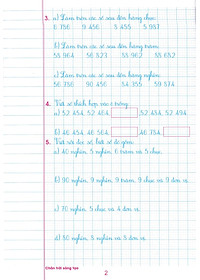 3. a) Làm tròn các số sau đến hàng chục.
6 756 9 456 3 455 5 987
b) Làm tròn các số sau đến hàng trăm.
53 964 56 823 53 962 53 652
c) Làm tròn các số sau đến hàng nghìn.
9 756 90 456 34 755 59 874
4. Viết số thích hợp vào ô trống.
a) 52 434, 52 464, 52 484, 52 494
b) 46 454 46 564, 46 784
5. Viết rồi đọc số, biết số đó gồm:
a) 40 nghìn, 5 nghìn, 6 trăm và 5 chục.
b) 90 nghìn, 9 nghìn, 9 trăm, 9 chục và 9 đơn vị.
c) 70 nghìn, 5 chục và 4 đơn vị.
d) 80 nghìn, 5 nghìn và 5 đơn vị.
Chân trời sáng tạo
2